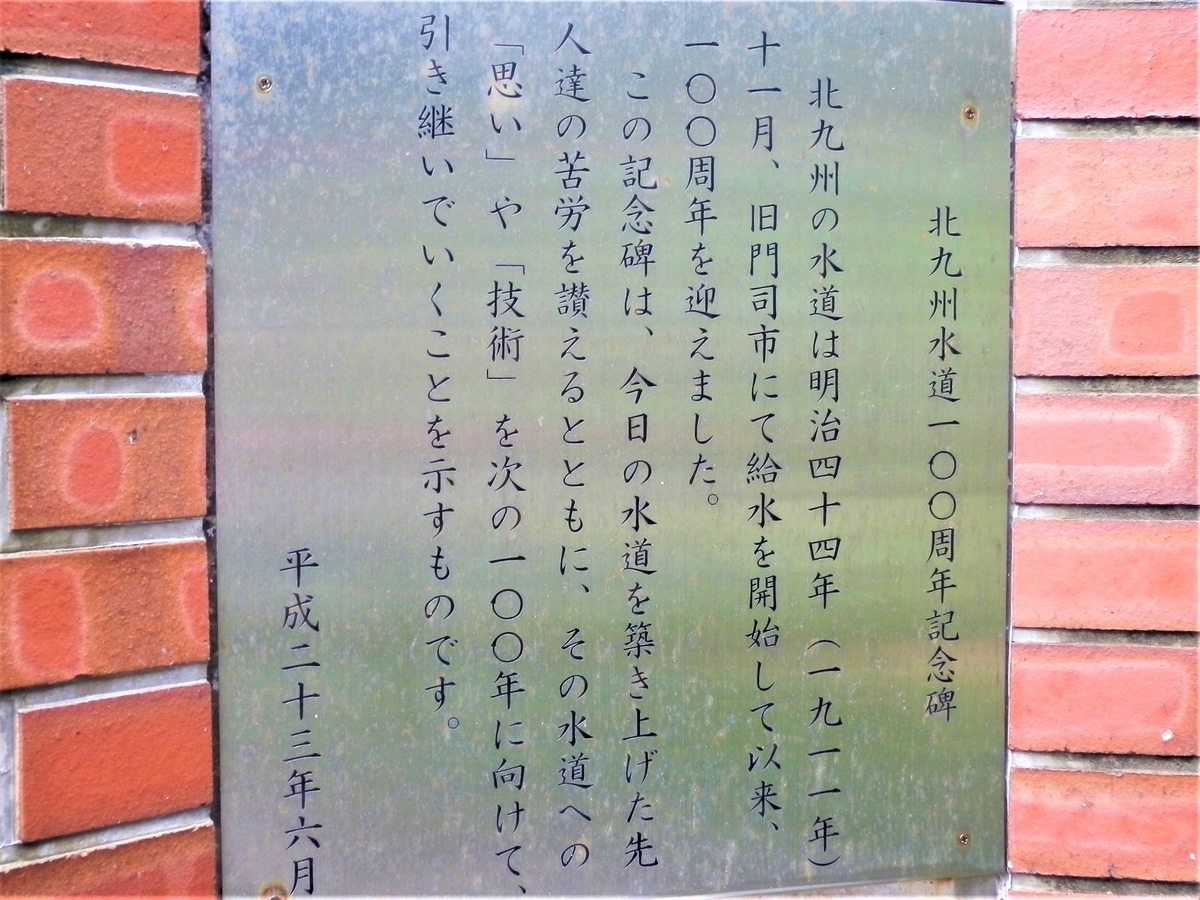 北九州水道一〇〇周年記念碑
北九州の水道は明治四十四年（一九一一年）
十一月、旧門司市にて給水を開始して以来、
一〇〇周年を迎えました。
この記念碑は、今日の水道を築き上げた先
人達の苦労を讃えるとともに、その水道への
「思い」や「技術」を次の一〇〇年に向けて、
引き継いでいくことを示すものです。
平成二十三年六月